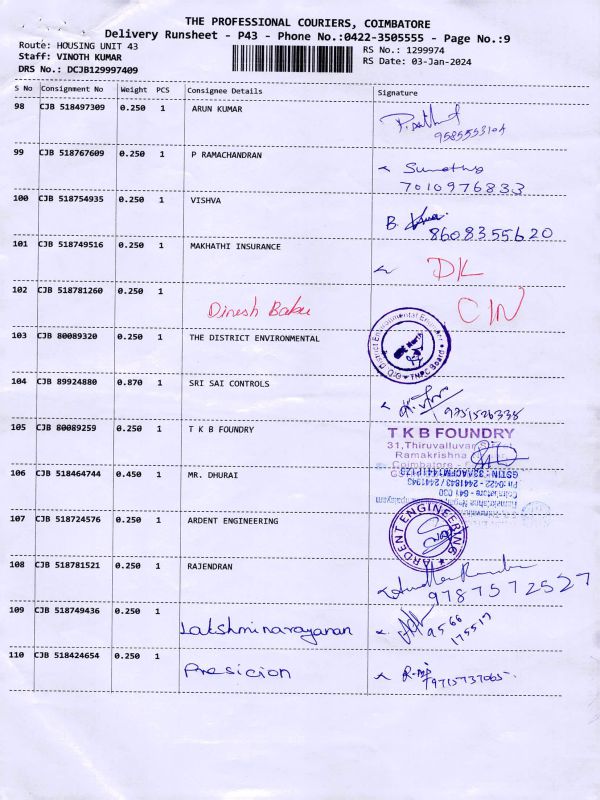 THE PROFESSIONAL COURIERS, COIMBATORE
Delivery Runsheet - P43 - Phone No.:0422-3505555 - Page No.:9
Route: HOUSING UNIT 43 RS No.: 1299974
Staff: VINOTH KUMAR RS Date: 03-Jan-2024
DRS No.: DCJB129997409
S No Consignment No Weight PCS Consignee Details Signature
98 CJB 518497309 0.250 1 ARUN KUMAR
9585553104
99 CJB 518767609 0.250 1 P RAMACHANDRAN
7010976833
100 CJB 518754935 0.250 1 VISHVA B.
8608355620
101 CJB 518749516 0.250 1 MAKHATHI INSURANCE DK
102 CJB 518781260 0.250 1 Dinesh Babu CIN
103 CJB 80089320 0.250 1 THE DISTRICT ENVIRONMENTAL
District Environmental Engineer TNPC Board
104 CJB 89924880 0.870 1 SRI SAI CONTROLS
9751526338
105 CJB 80089259 0.250 1 T K B FOUNDRY
T K B FOUNDRY
31,Thiruvalluvar
Ramakrishna
Coimbatore
106 CJB 518464744 0.450 1 MR. DHURAI
Ph :0422 - 2441843 / 2441943
Coimbatore - 641 030
107 CJB 518724576 0.250 1 ARDENT ENGINEERING
ARDENT ENGINEERING
108 CJB 518781521 0.250 1 RAJENDRAN
9787572527
109 CJB 518749436 0.250 1 Lakshminarayanan
9566
175517
110 CJB 518424654 0.250 1 Presicion
9715737065